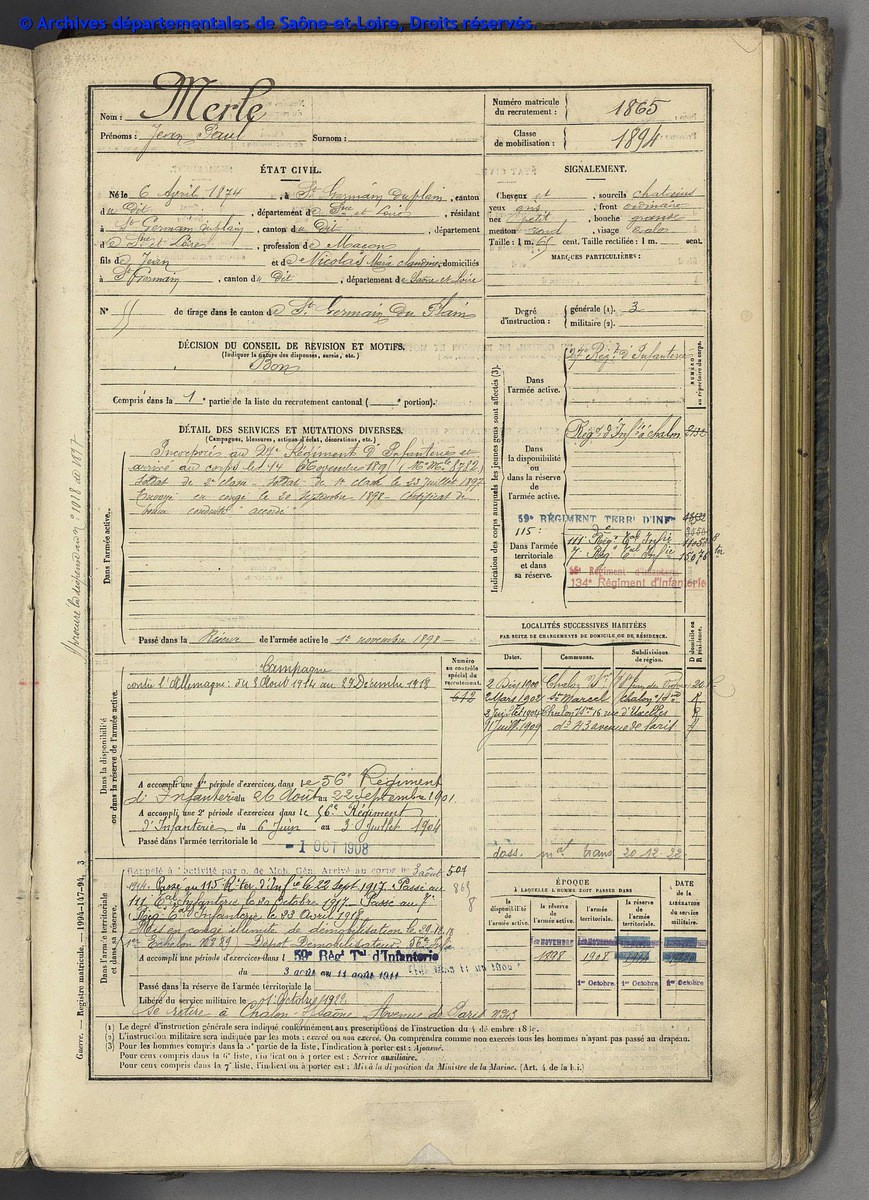 © Archives départementales de Saône-et-Loire, Droits réservés
Nom : Merle
Prénoms : Jean Paul Surnom :
Numéro matricule du recrutement : 1865
Classe de mobilisation : 1894
ÉTAT CIVIL.
Né le 6 Avril 1874, à St Germain du plain, canton
du Dit, département de Sne et Loire, résidant
à St Germain du plain, canton du Dit, département
de Sne et Loire, profession de Maçon
fils de Jean et de Nicolas Marie Claudine, domiciliés
à St Germain, canton du Dit, département de Saône et Loire
N° 55 de tirage dans le canton de St Germain Du Plain
SIGNALEMENT.
Cheveux et, sourcils chatains
yeux gris, front ordinaire
nez petit, bouche grande
menton rond, visage ovale
Taille : 1 m. 65 cent. Taille rectifiée : 1 m. cent.
MARQUES PARTICULIÈRES :
Degré d'instruction : générale (1). 3
militaire (2).
DÉCISION DU CONSEIL DE REVISION ET MOTIFS.
(Indiquer la nature des dispenses, sursis, etc.)
Bon
Compris dans la 1e partie de la liste du recrutement cantonal ( e portion).
DÉTAIL DES SERVICES ET MUTATIONS DIVERSES.
(Campagnes, blessures, actions d'éclat, décorations, etc.)
Dans l'armée active.
Incorporé au 27e Régiment D'Infanterie et
arrivé au corps le 14 Novembre 1895 (N° Mle 3712)
soldat de 2e classe - soldat de 1e classe le 23 juillet 1897
Envoyé en congé le 20 Septembre 1898 - Certificat de
bonne conduite "accordé"
Passé dans la Réserve de l'armée active le 1er novembre 1898
Indication des corps auxquels les jeunes gens sont affectés (3).
NUMÉRO au répertoire du corps.
Dans l'armée active. 27e Régt d'Infanterie
Dans la disponibilité ou dans la réserve de l'armée active. Régt d'Infie à Chalon
Dans l'armée territoriale et dans sa réserve.
59e RÉGIMENT TERRl D'INFie
115e do
111 Régt Tal Infie
7e Régt Tal Infie
134e Régiment d'Infanterie
LOCALITÉS SUCCESSIVES HABITÉES
PAR SUITE DE CHANGEMENTS DE DOMICILE OU DE RÉSIDENCE.
Dates. Communes. Subdivisions de région. D domicile ou R résidence.
2 Mars 1902 St Marcel Chalon s/Sne R
3 Juillet 1904 Chalon s/Sne 16 rue d'Uxelles R
11 Juillet 1909 do 43 avenue de Paris R
doss. mat trans 20.12.22
Dans la disponibilité ou dans la réserve de l'armée active.
Numéro au contrôle spécial du recrutement.
642
Campagne
contre l'Allemagne : du 3 Août 1914 au 27 Décembre 1918
A accompli une 1re période d'exercices dans le 56e Régiment
d'Infanterie du 26 Août au 22 Septembre 1901
A accompli une 2e période d'exercices dans le 56e Régiment
d'Infanterie du 6 Juin au 3 Juillet 1904
Passé dans l'armée territoriale le -1 OCT 1908
Dans l'armée territoriale et dans sa réserve.
Rappelé à l'activité par o. de Mob. Gén. Arrivé au corps le 3 août
1914. Passé au 115 R. Ter. d'Infie le 22 Sept 1917. Passé au
111 Tal d'Infanterie le 20 Octobre 1917. Passé au 7e
Régt Tal d'Infanterie le 23 Avril 1918
Mis en congé illimité de démobilisation le
1er Echelon Dépôt Démobilisateur 56e Infie
504
A accompli une période d'exercices dans le 59e Régt Tal d'Infanterie
du 3 août au 11 août 1911
Passé dans la réserve de l'armée territoriale le
Libéré du service militaire le
Se retire à Chalon s/Saône Avenue de Paris
ÉPOQUE
À LAQUELLE L'HOMME DOIT PASSER DANS
la disponibilité de l'armée active. la réserve de l'armée active. l'armée territoriale. la réserve de l'armée territoriale.
DATE de la LIBÉRATION du service militaire.
1er NOVEMBRE
1898 1908
1er Octobre 1er Octobre 1er Octobre
(1) Le degré d'instruction générale sera indiqué conformément aux prescriptions de l'instruction du 4 décembre 1889.
(2) L'instruction militaire sera indiquée par les mots : exercé ou non exercé. On comprendra comme non exercés tous les hommes n'ayant pas passé au drapeau.
(3) Pour les hommes compris dans la 5e partie de la liste, l'indication à porter est : Ajourné.
Pour ceux compris dans la 6e liste, l'indication à porter est : Service auxiliaire.
Pour ceux compris dans la 7e liste, l'indication à porter est : Mis à la disposition du Ministre de la Marine. (Art. 4 de la loi.)
Guerre. — Registre matricule. — 1994-147-94. 3